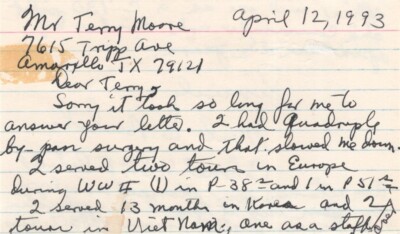 Mr Terry Moore April 12, 1993
7615 Tripp Ave
Amarillo TX 79121
Dear Terry,
Sorry it took so long for me to
answer your letter. I had Quadruple
by-pass surgery and that slowed me down.
I served two tours in Europe
during WW II (1) in P-38's and 1 in P51's
I served 13 months in Korea and 2
tours in Viet Nam, one as a staff